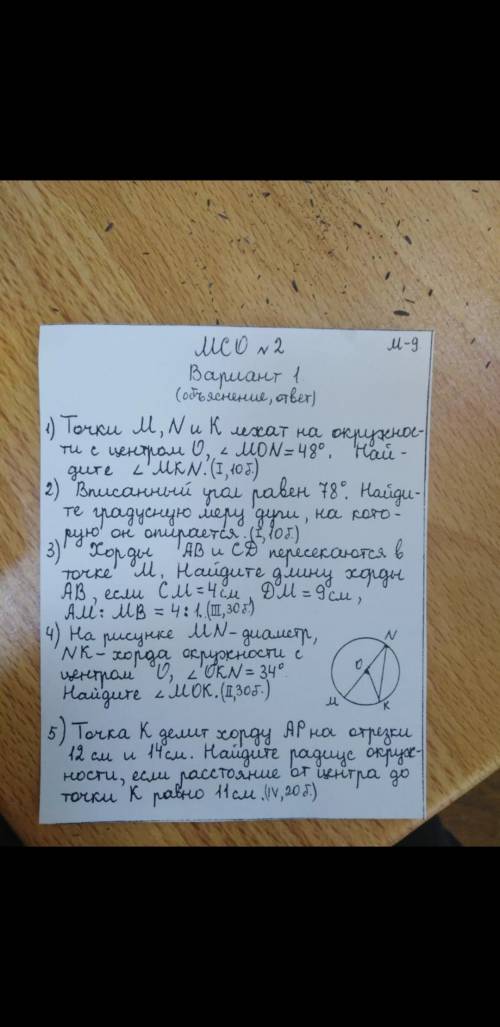 МСО №2
М-9
Вариант 1.
(объяснение, ответ)
1) Точки M, N и K лежат на окружнос-
ти с центром O, ∠MON = 48°. Най-
дите ∠MKN. (I, 10б.)
2) Вписанный угол равен 78°. Найди-
те градусную меру дуги, на кото-
рую он опирается. (I, 10б.)
3) Хорды AB и CD пересекаются в
точке M. Найдите длину хорды
AB, если CM = 4см, DM = 9см,
AM : MB = 4 : 1. (III, 30б)
4) На рисунке MN- диаметр,
NK- хорда окружности с
центром O, ∠OKN = 34°.
Найдите ∠MOK. (II, 30б.)
N
O
M
K
5) Точка K делит хорду AP на отрезки
12 см и 14 см. Найдите радиус окруж-
ности, если расстояние от центра до
точки K равно 11 см. (IV, 20б.)